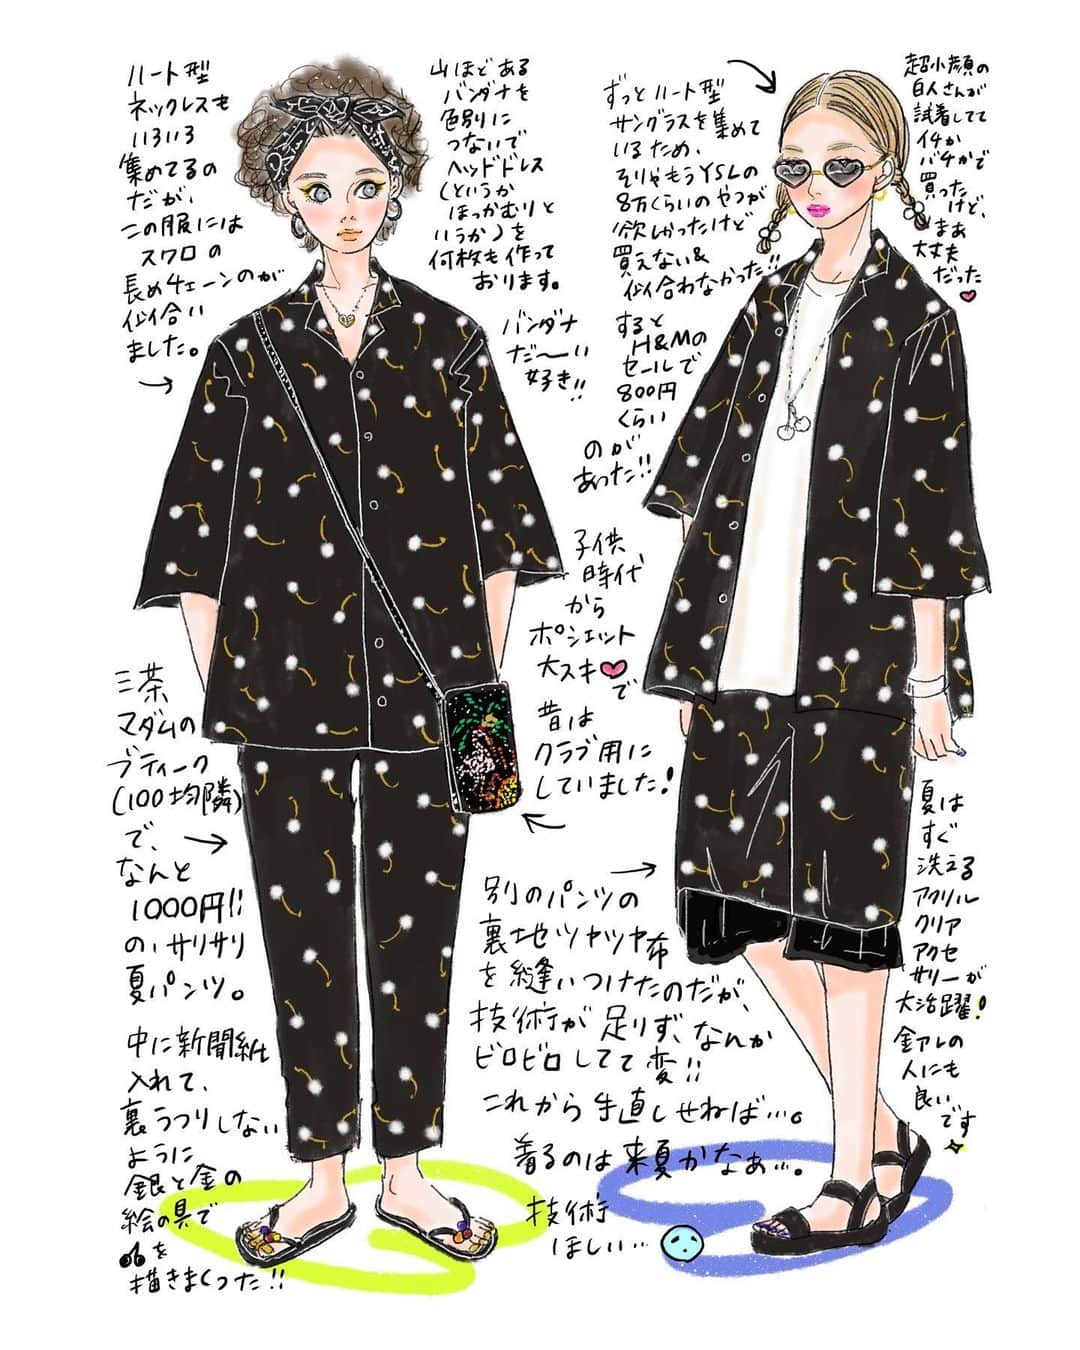 ハート型
ネックレスも
いろいろ
集めてるの
だが、
この服には
スワロの
長めチェーンのが
似合い
ました。
山ほどある
バンダナを
色別に
つないで
ヘッドドレス
(というか
ほっかむりと
いうか)を
何枚も作って
おります。
バンダナ
だ〜い
好き!!
ずっとハート型
サングラスを集めて
いるため、
そりゃもうYSLの
8万くらいのやつが
欲しかったけど
買えない&
似合わなかった!!
すると
H&Mの
セールで
800円
くらい
のが
あった!!
超小顔の
白人さんが
試着してて
イチか
バチかで
買った
けど、
まあ
大丈夫
だった
子供
時代
から
ポシェット
大スキ
で
昔は
クラブ用に
していました!
三茶
マダムの
ブティーク
(100均隣)
で、
なんと
1000円!!
の、サリサリ
夏パンツ。
中に新聞紙
入れて、
裏うつりしない
ように
銀と金の
絵の具で
を
描きまくった!!
別のパンツの
裏地ツヤツヤ布
を縫いつけたのだが、
技術が足りず、なんか
ビロビロしてて変!!
これから手直しせねば…。
着るのは来夏かなぁ…。
技術
ほしい…
夏は
すぐ
洗える
アクリル
クリア
アクセ
サリーが
大活躍!
金アレの
人にも
良い
です